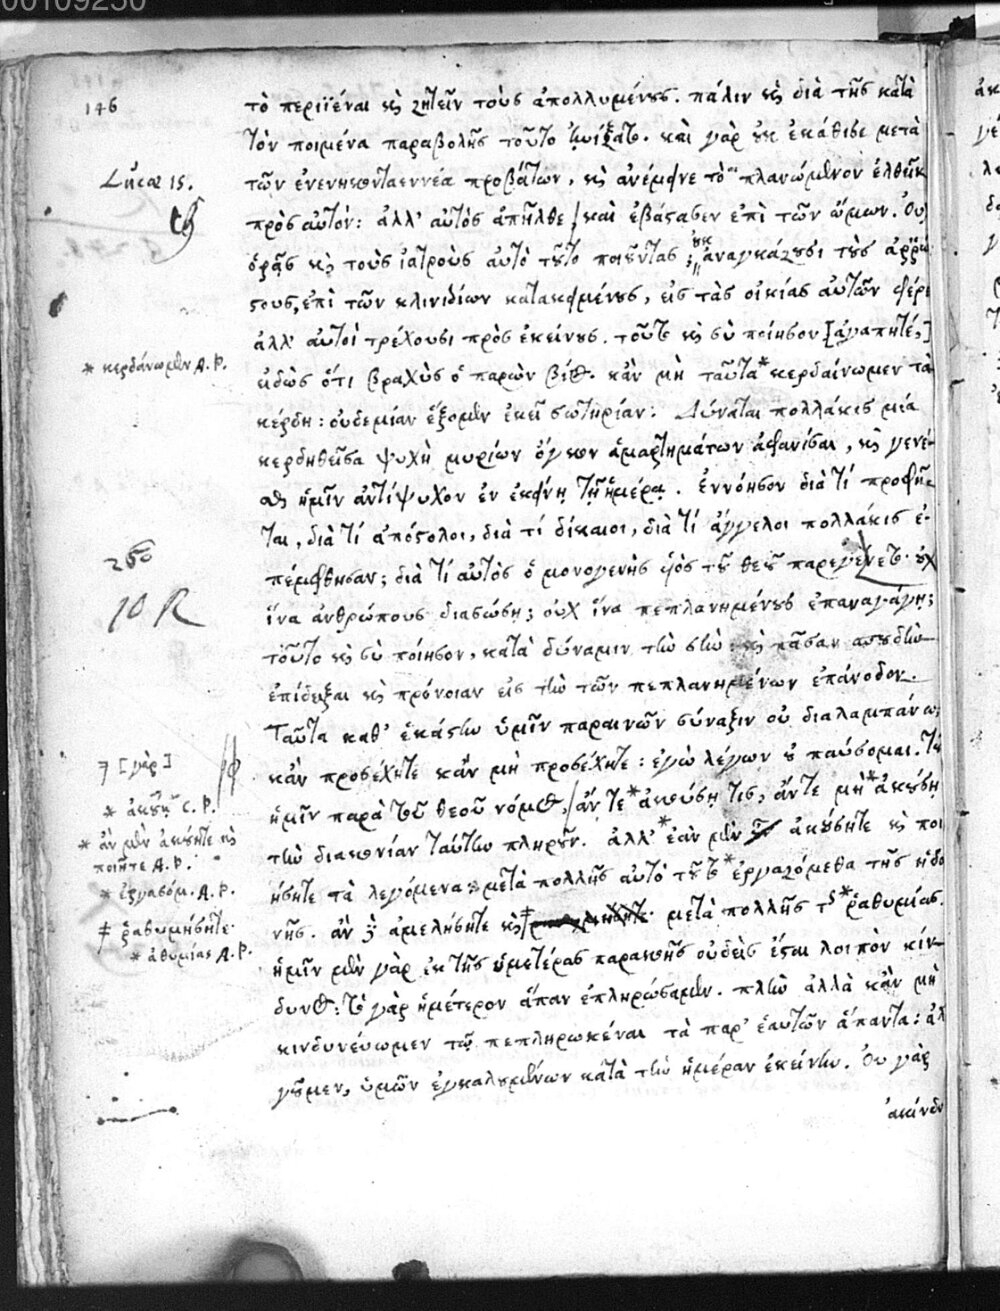 00109250
146
τὸ περιϊέναι κὶ ζητεῖν τοὺς ἀπολλυμένους. πάλιν κὶ διὰ τῆς κατὰ
τὸν ποιμένα παραβολῆς τοῦτο ᾐνίξατο. καὶ γὰρ οὐκ ἐκάθισε μετὰ
Lucæ 15.
τῶν ἐνενηκονταεννέα προβάτων, κὶ ἀνέμεινε τὸ πλανώμενον ἐλθεῖν
πρὸς αὐτόν: ἀλλ' αὐτὸς ἀπῆλθε καὶ ἐβάστασεν ἐπὶ τῶν ὤμων. Οὐχ
ὁρᾷς κὶ τοὺς ἰατροὺς αὐτὸ τοῦτο ποιοῦντας; οὐκ ἀναγκάζουσι τοὺς ἀρρώ
στους, ἐπὶ τῶν κλινιδίων κατακειμένους, εἰς τὰς οἰκίας αὐτῶν φέρε
ἀλλ' αὐτοὶ τρέχουσι πρὸς ἐκείνους. τοῦτο κὶ σὺ ποίησον [ἀγαπητέ,]
* κερδάνωμεν A. P.
εἰδὼς ὅτι βραχὺς ὁ παρὼν βίος. κἂν μὴ ταῦτα * κερδαίνωμεν τὰ
κέρδη: οὐδεμίαν ἕξομεν ἐκεῖ σωτηρίαν. Δύναται πολλάκις μία
κερδηθεῖσα ψυχὴ μυρίων ὄγκον ἁμαρτημάτων ἀφανίσαι, κὶ γενέ-
σθαι ἡμῖν ἀντίψυχον ἐν ἐκείνῃ τῇ ἡμέρᾳ. ἐννόησον διὰ τί προφῆ-
ται, διὰ τί ἀπόστολοι, διὰ τί δίκαιοι, διὰ τί ἄγγελοι πολλάκις ἐ-
πέμφθησαν; διὰ τί αὐτὸς ὁ μονογενὴς υἱὸς τοῦ θεοῦ παρεγένετο. οὐχ
10 R
ἵνα ἀνθρώπους διασώσῃ; οὐχ ἵνα πεπλανημένους ἐπαναγάγῃ;
τοῦτο κὶ σὺ ποίησον, κατὰ δύναμιν τὴν σὴν κὶ πᾶσαν σπουδὴν
ἐπίδειξαι κὶ πρόνοιαν εἰς τὴν τῶν πεπλανημένων ἐπάνοδον.
Ταῦτα καθ' ἑκάστην ὑμῖν παραινῶν σύναξιν οὐ διαλιμπάνω:
κἂν προσέχητε κἂν μὴ προσέχητε: ἐγὼ λέγων οὐ παύσομαι.
[γὰρ]
ἡμῖν παρὰ τοῦ θεοῦ νόμος, ἄν τε * ἀκούσῃ τις, ἄντε μὴ * ἀκούσῃ
* ἀκούῃ C. P.
τὴν διακονίαν ταύτην πληροῦν. ἀλλ' * ἐὰν μὲν ἀκούσητε κὶ ποι
* ἂν μὲν ἀκούητε κὶ
ποιῆτε A. P.
ήσητε τὰ λεγόμενα μετὰ πολλῆς αὐτὸ τοῦτο * ἐργαζόμεθα τῆς ἡδο
* ἐργασόμ. A. P.
νῆς. ἂν δὲ ἀμελήσητε κὶ ‡ μετὰ πολλῆς τῆς * ῥαθυμίας.
‡ ῥαθυμήσητε.
* ἀθυμίας A. P.
ἡμῖν μὲν γὰρ ἐκ τῆς ὑμετέρας παρακοῆς οὐδεὶς ἔσται λοιπὸν κίν-
δυνος: τὸ γὰρ ἡμέτερον ἅπαν ἐπληρώσαμεν. πλὴν ἀλλὰ κἂν μὴ
κινδυνεύωμεν τῷ πεπληρωκέναι τὰ παρ' ἑαυτῶν ἅπαντα: ἀλ
γοῦμεν, ὑμῶν ἐγκαλουμένων κατὰ τὴν ἡμέραν ἐκείνην. Οὐ γὰρ
ἀκίνδυ